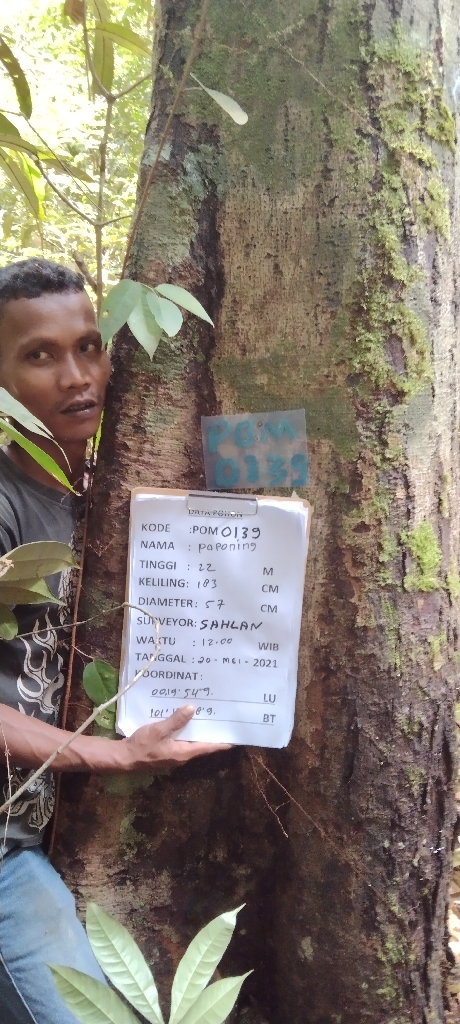 POM
0139
DATA POHON
KODE :POM 0139
NAMA : paponing
TINGGI : 22 M
KELILING: 183 CM
DIAMETER: 57 CM
SURVEYOR: SAHLAN
WAKTU : 12.00 WIB
TANGGAL : 20 - MEI - 2021
OORDINAT:
0019' 54"9. LU
BT